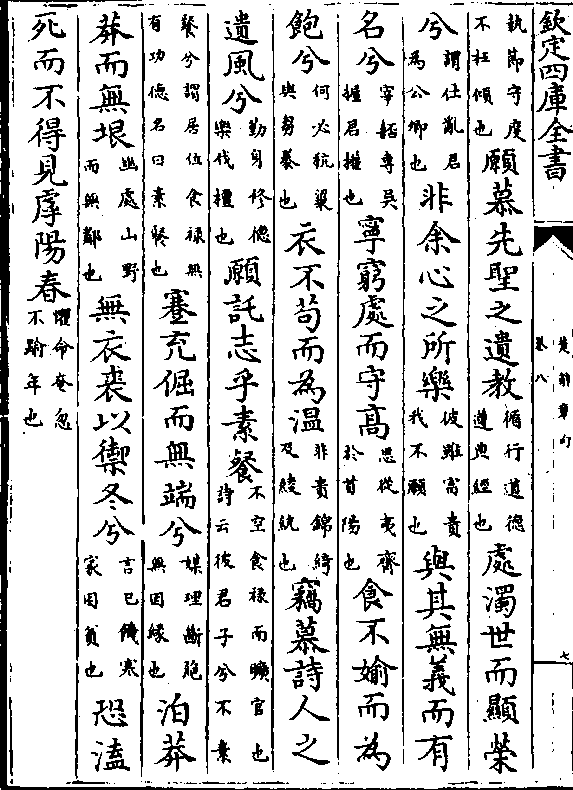 欽定四庫全書
楚辭章句
卷八
七
執節守度不枉傾也願慕先聖之遺教循行道德遵典經也處濁世而顯榮
兮謂仕亂君為公卿也非余心之所樂彼雖富貴我不願也與其無義而有
名兮宰嚭專吳握君權也寧窮處而守高思從夷齊於首陽也食不媮而為
飽兮何必秔粱與芻豢也衣不苟而為温非貴錦綺及綾紈也竊慕詩人之
遺風兮勤身修德樂伐檀也願託志乎素餐不空食禄而曠官也詩云彼君子兮不素
餐兮謂居位食禄無有功德名曰素餐也蹇充倔而無端兮媒理斷絶無因緣也泊莽
莽而無垠幽處山野而無鄰也無衣裘以禦冬兮言已饑寒家困貧也恐溘
死而不得見虖陽春懼命奄忽不踰年也